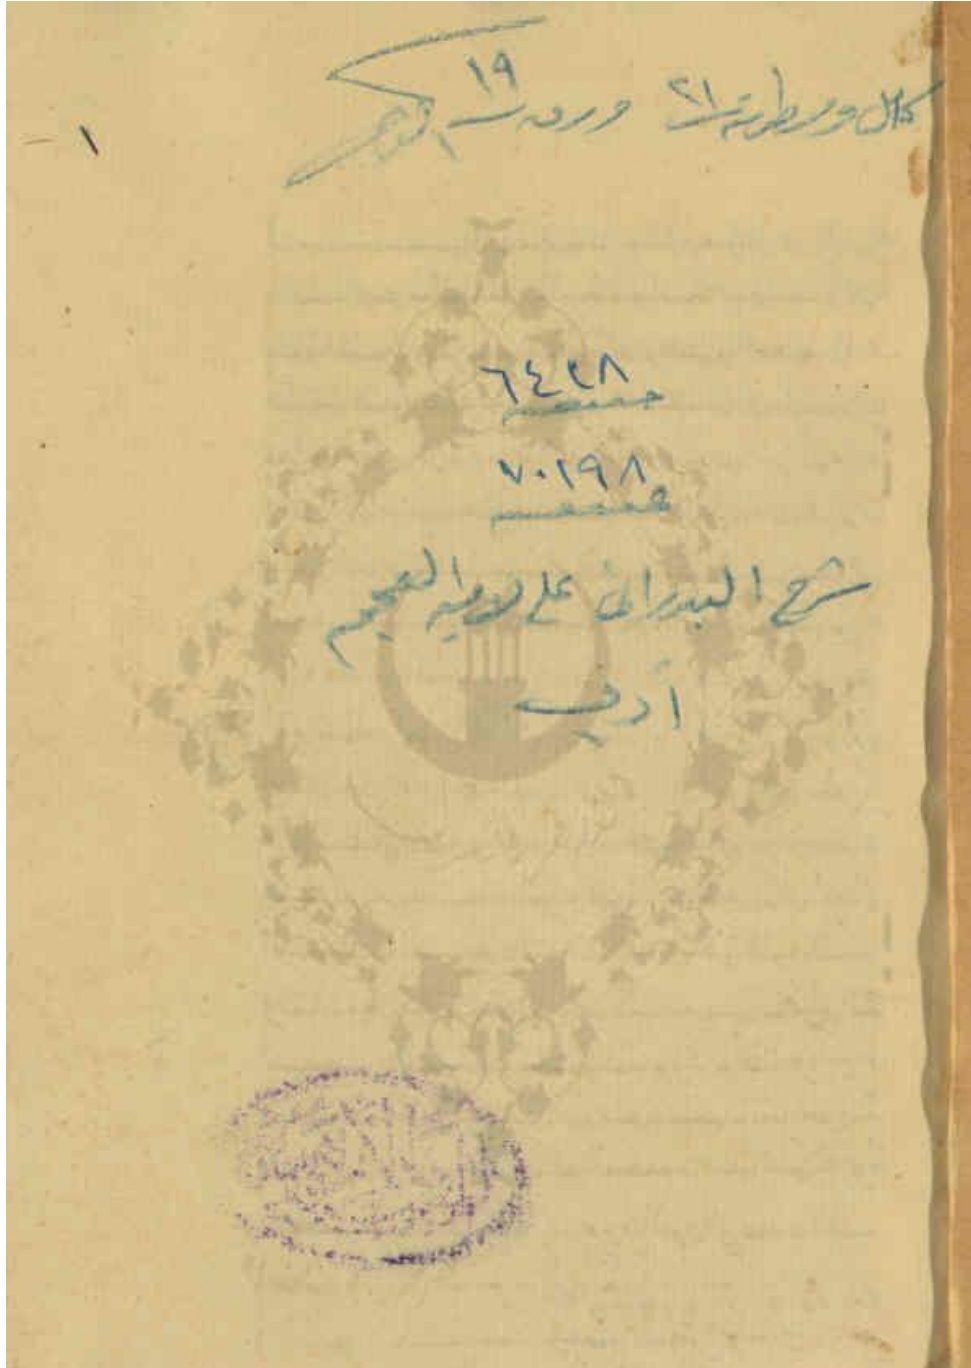 كامل ومسطرته ٢١ وورقه ١٩
١
٦٤٢٨
٧٠١٩٨
شرح البدراني على لامية العجم
أدب